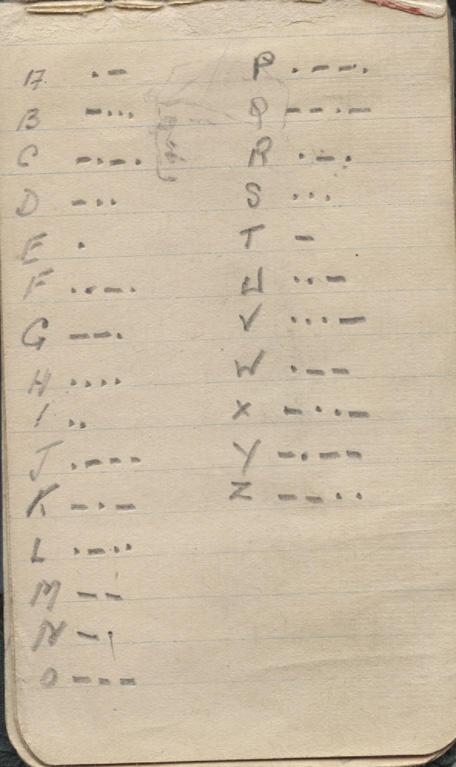 A .-
B -...
C -.-.
D -..
E .
F ..-.
G --.
H ....
I ..
J .---
K -.-
L .-..
M --
N -.
O ---
P .--.
Q --.-
R .-.
S ...
T -
U ..-
V ...-
W .--
X -..-
Y -.--
Z --..